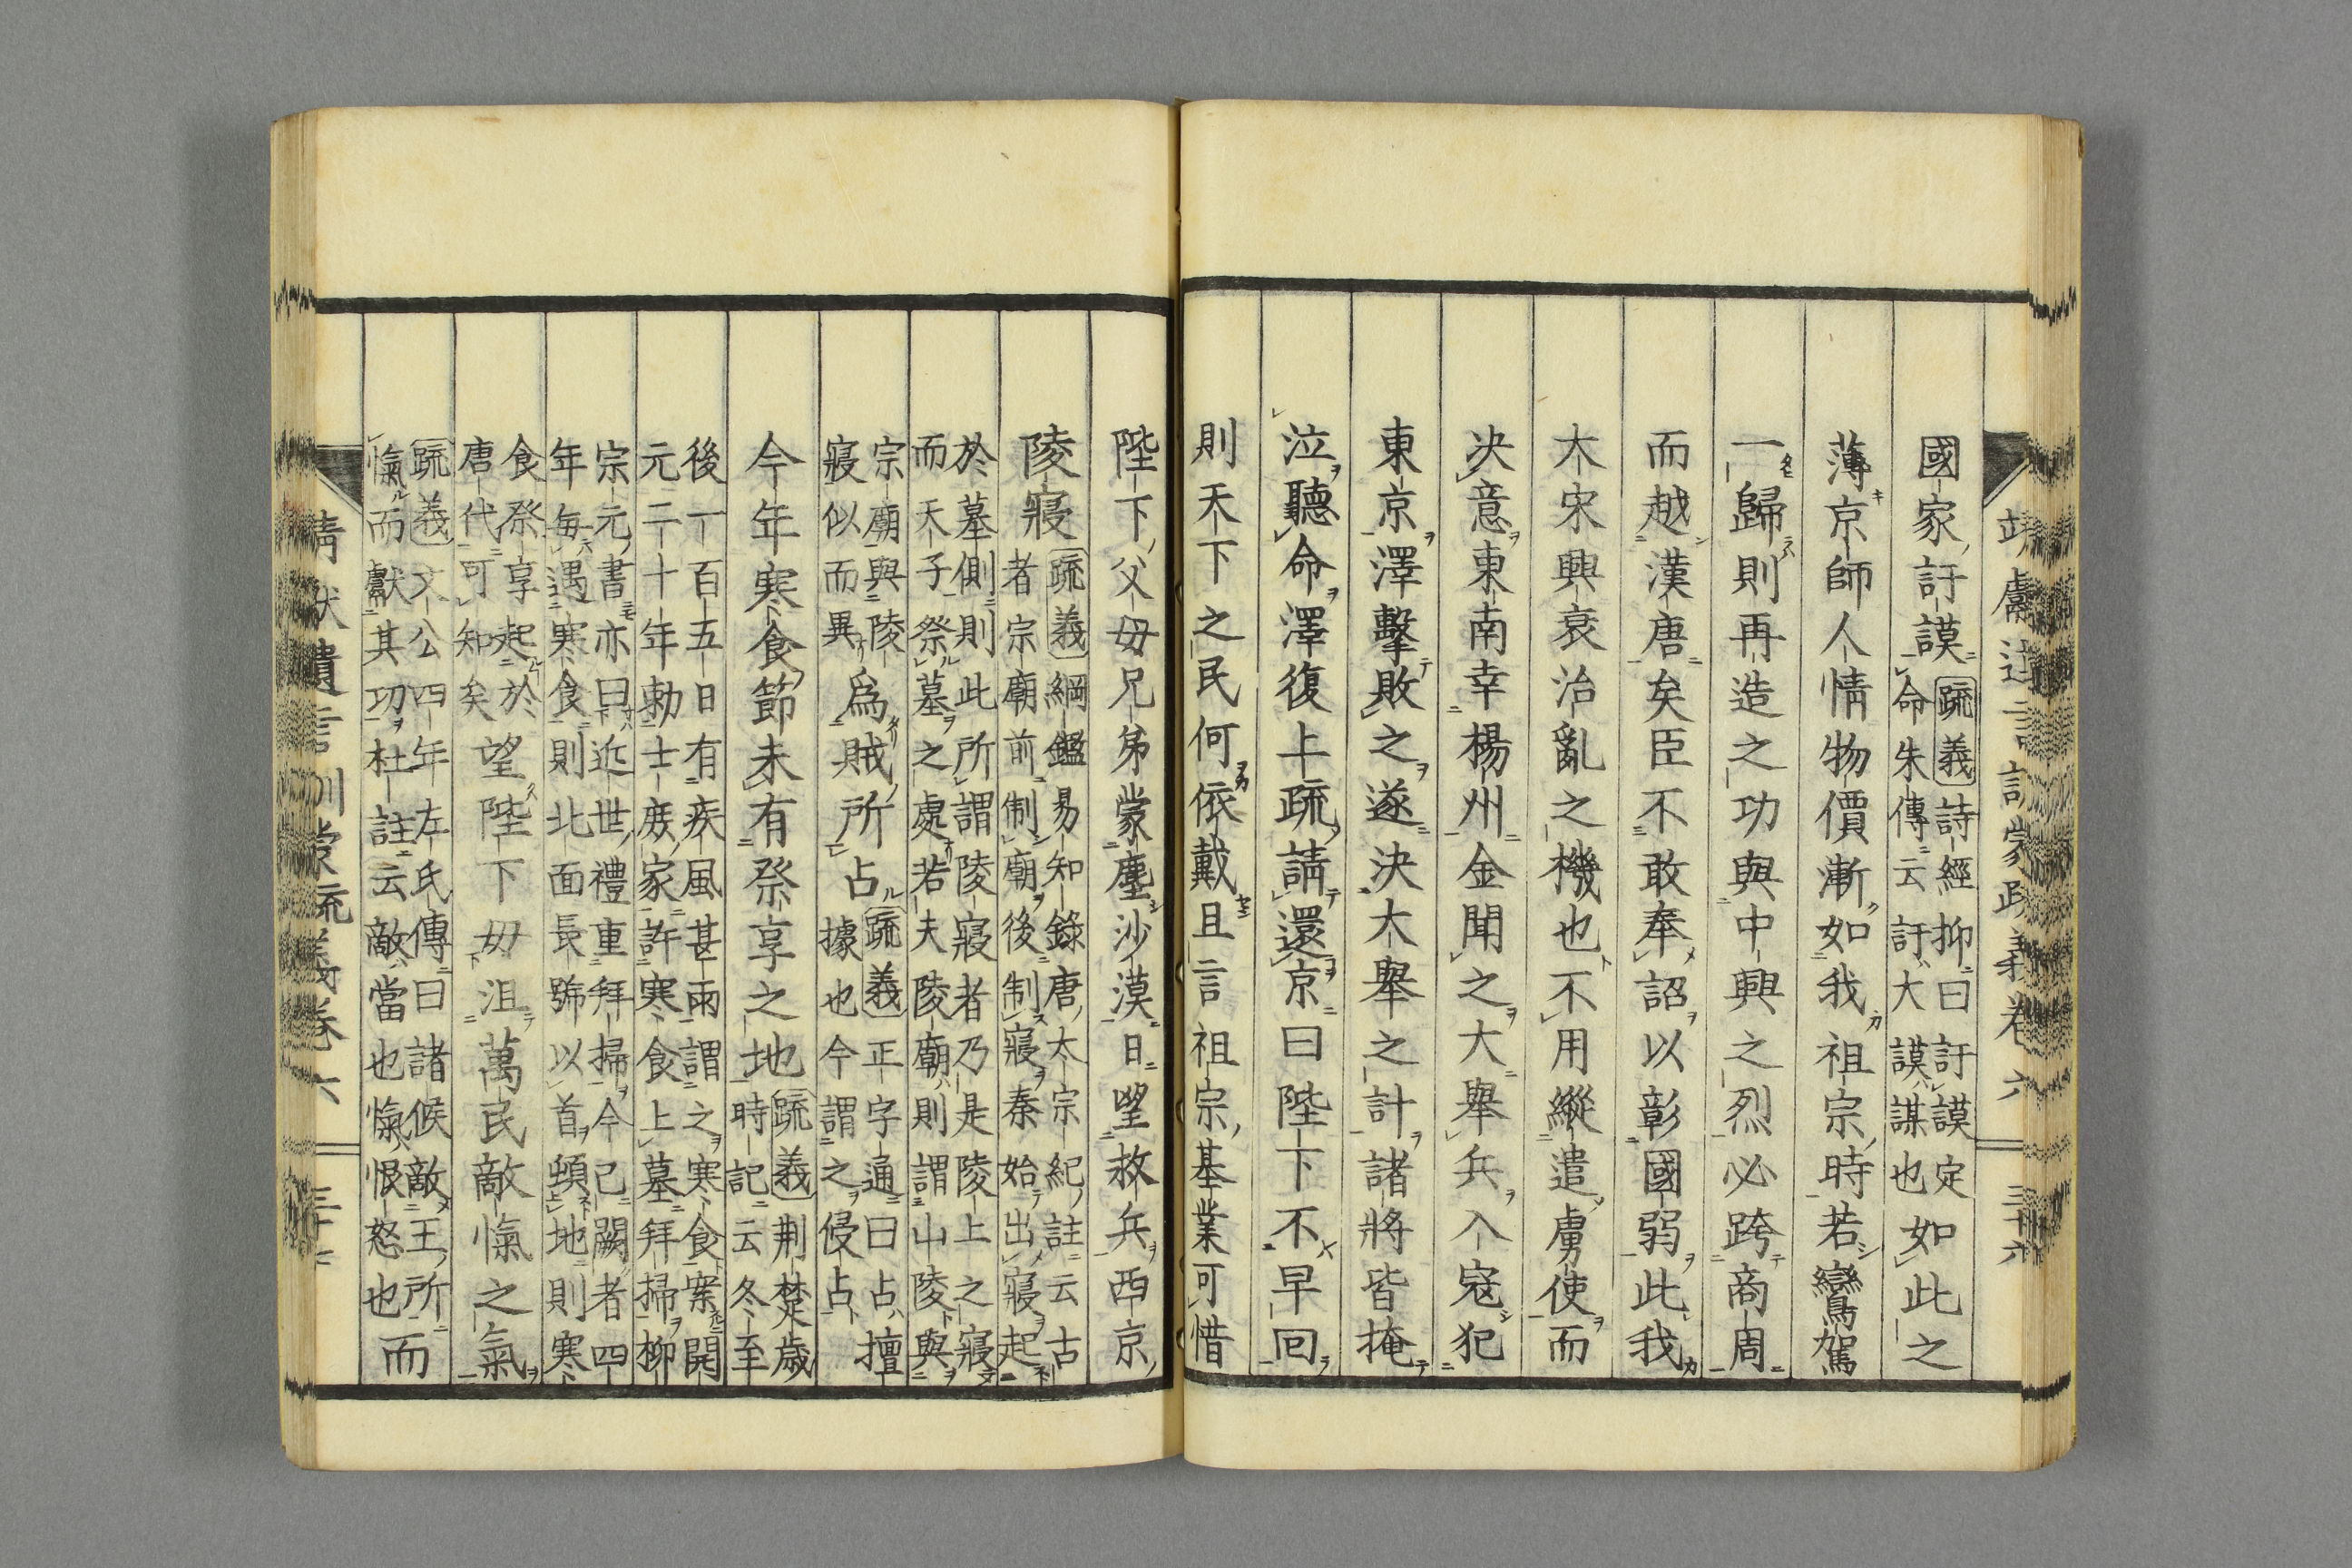 靖獻遺言訓蒙疏義卷六 三十六
國家訏謨
疏義詩經抑曰訏謨定
命朱傳云訏大謨謀也
如此之
薄京師人情物價漸如我祖宗時若鸞駕
一歸則再造之功與中興之烈必跨商周
而越漢唐矣臣不敢奉詔以彰國弱此我
大宋興衰治亂之機也不用縱遣虜使而
决意東南幸楊州金聞之大舉兵入寇犯
東京澤擊敗之遂決大舉之計諸將皆掩
泣聽命澤復上疏請還京曰陛下不早回
則天下之民何依戴且言祖宗基業可惜
陛下父母兄弟蒙塵沙漠日望救兵西京
陵寢
疏義綱鑑易知錄唐太宗紀註云古
者宗廟前制廟後制寢秦始出寢起
於墓側則此所謂陵寢者乃是陵上之寢
而天子祭墓之處若夫陵廟則謂山陵與
宗廟與陵
寢似而異
爲賊所占
疏義正字通曰占擅
據也今謂之侵占
今年寒食節未有祭享之地
疏義荆楚歲
時記云冬至
後一百五日有疾風甚雨謂之寒食案開
元二十年勅士庶家許寒食上墓拜掃柳
宗元書亦曰近世禮重拜掃今已闕者四
年每遇寒食則北面長號以首頓地則寒
食祭享起於
唐代可知矣
望陛下毋沮萬民敵愾之氣
疏義文公四年左氏傳曰諸候敵王所
愾而獻其功杜註云敵當也愾恨怒也
而
靖獻遺言訓蒙疏義卷六 三十七